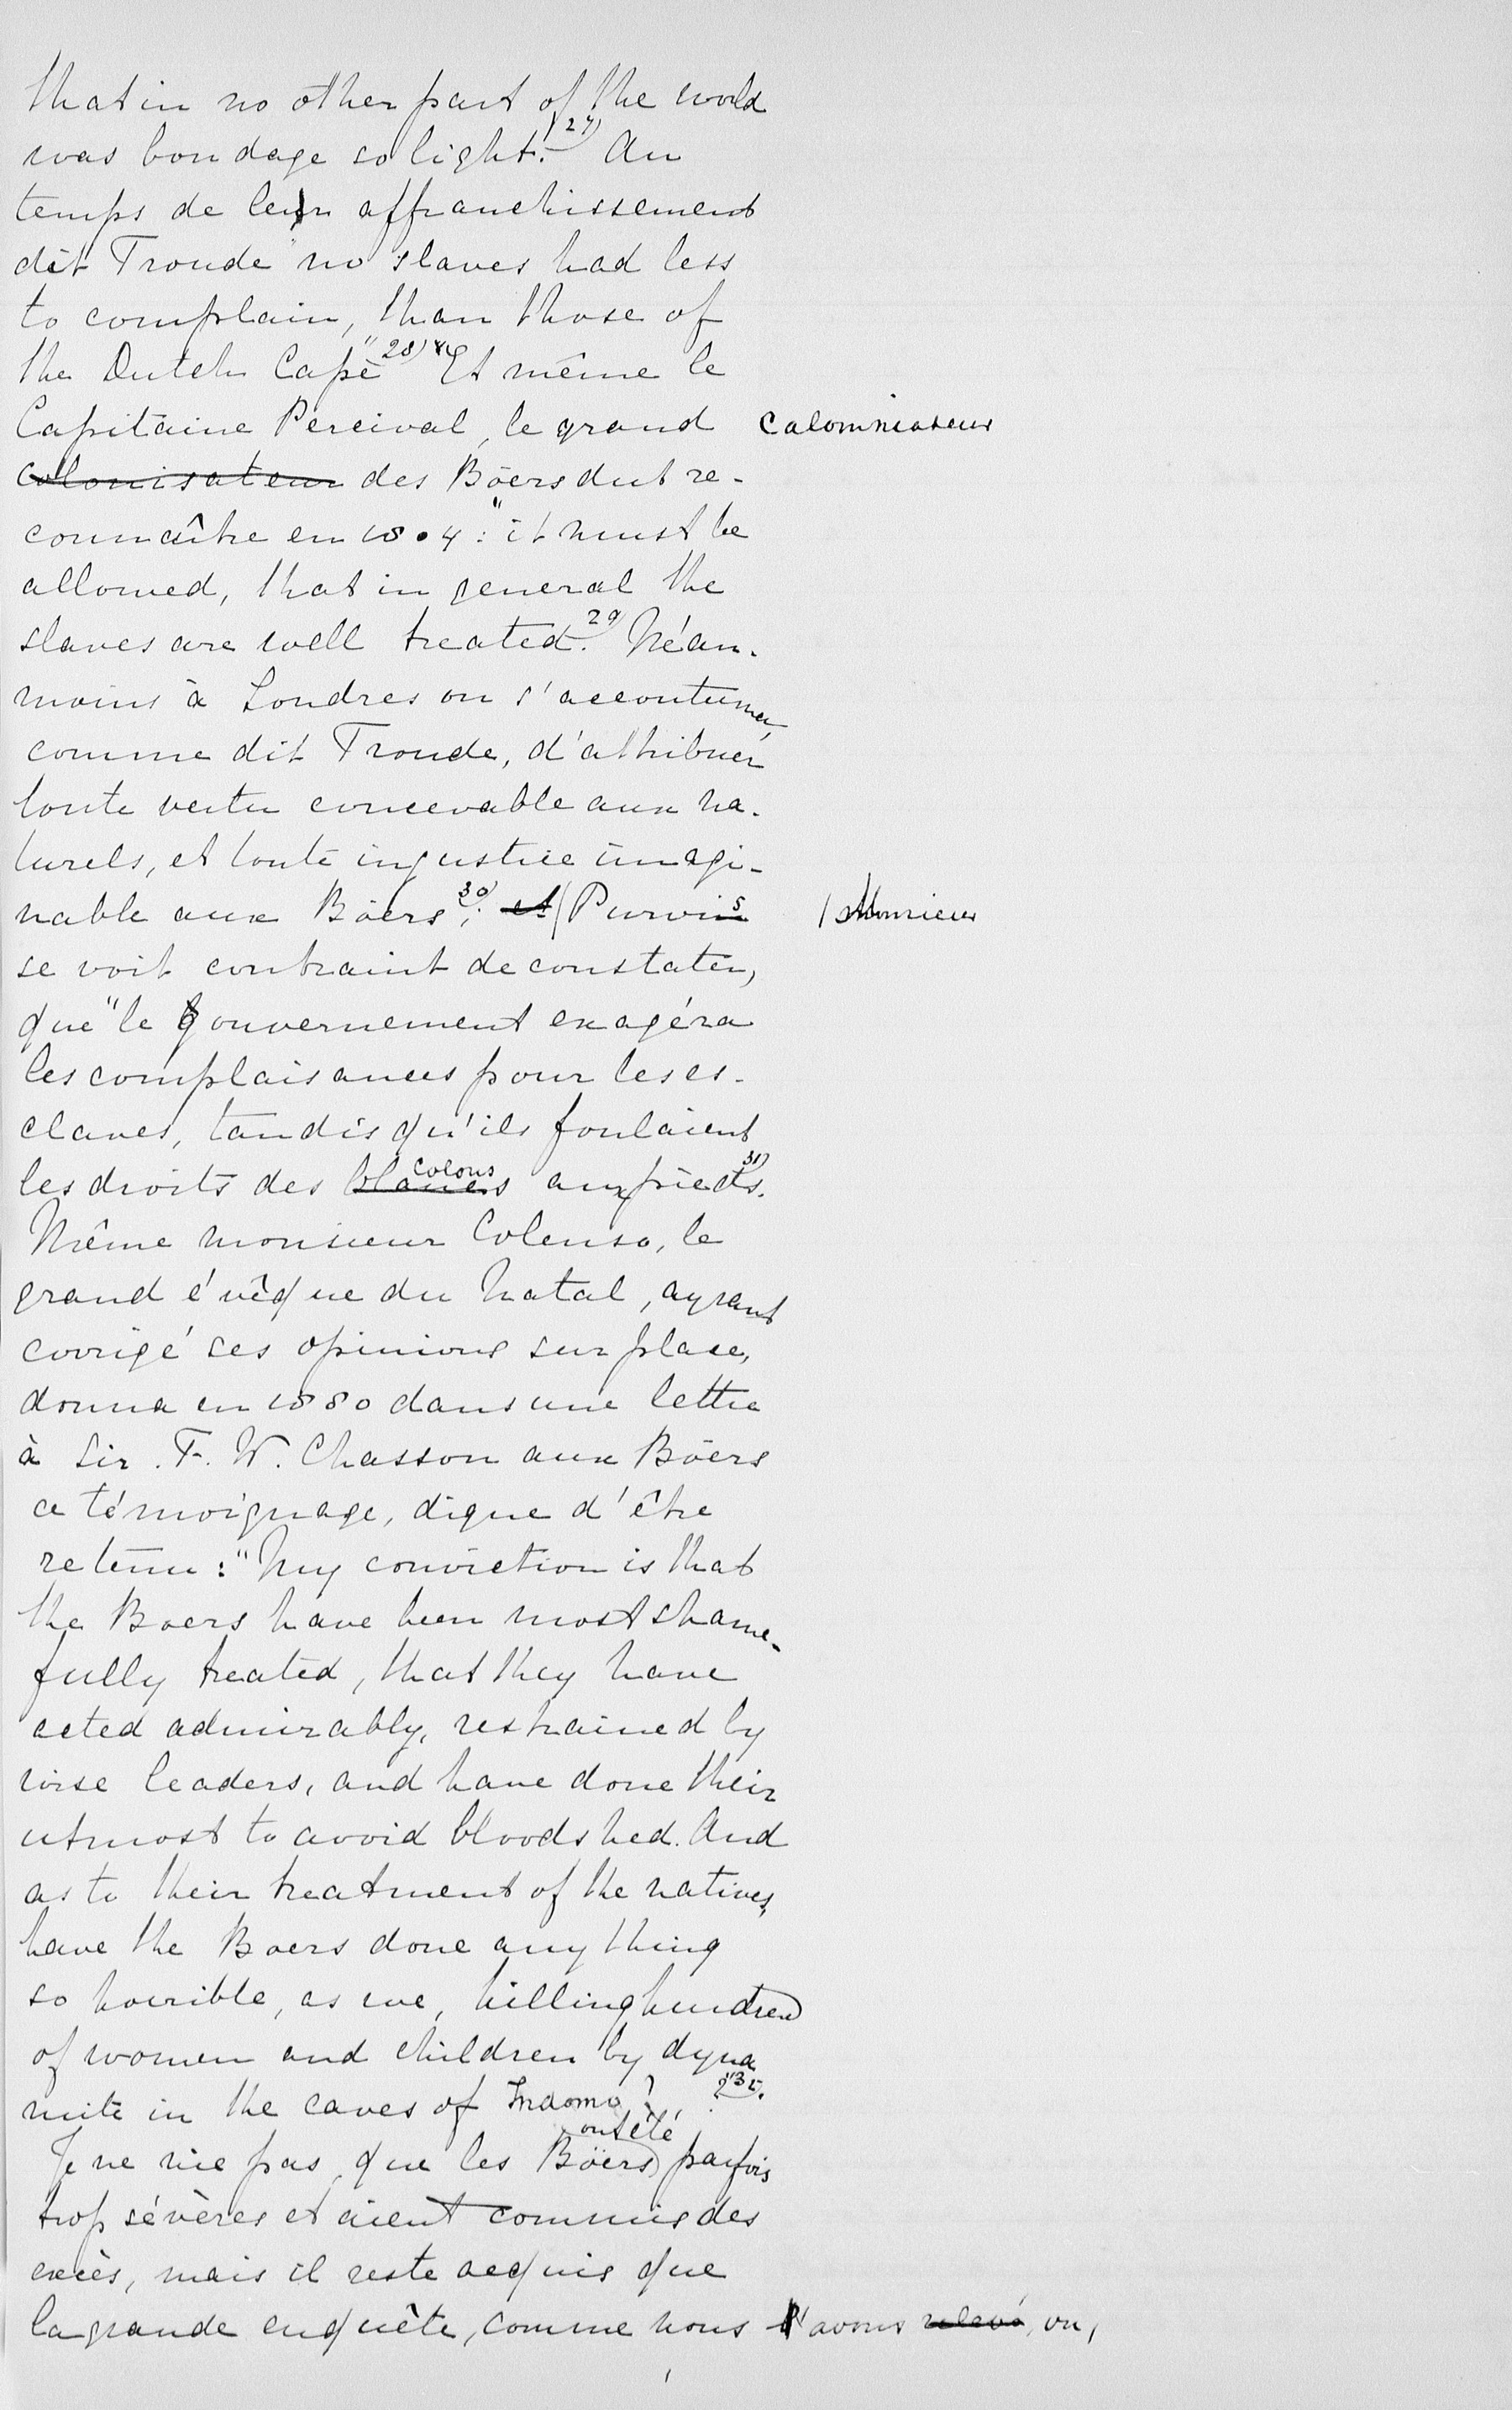 that in no other part of the world
was bondage so light." 27) Au
temps de leur affranchissement
dit Froude "no slaves had less
to complain, than those of
the Dutch Cape" 28) Et même le
Capitaine Percival, le grand calomniateur
colonisateur des Böers dut re-
connaître en 1804: "it must be
allowed, that in general the
slaves are well treated. 29) Néan-
moins à Londres on s'accoutuma,
comme dit Froude, d'attribuer
toute vertu concevable aux na-
turels, et toute injustice imagi-
nable aux Böers 30); et / Purvis / Monsieur
se voit contraint de constater,
que "le Gouvernement exagéra
les complaisances pour les es-
claves, tandis qu'ils foulaient
les droits des blancs colons aux pieds. 31)
Même monsieur Colenso, le
grand évêque du Natal, ayant
corrigé ses opinions sur place,
donna en 1880 dans une lettre
à Sir. F. W. Chasson aux Böers
ce témoignage, digne d'être
retenu: "My conviction is that
the Boers have been most shame-
fully treated, that they have
acted admirably, restrained by
wise leaders, and have done their
utmost to avoid bloodshed. And
as to their treatment of the natives,
have the Boers done any thing
so horrible, as we, killing hundred
of women and children by dyna
mite in the caves of Indomo?
Je ne nie pas, que les Böers ont été parfois
trop sévères et aient commis des
excès, mais il reste acquis que
la grande enquête, comme nous l'avons relevé, vu,